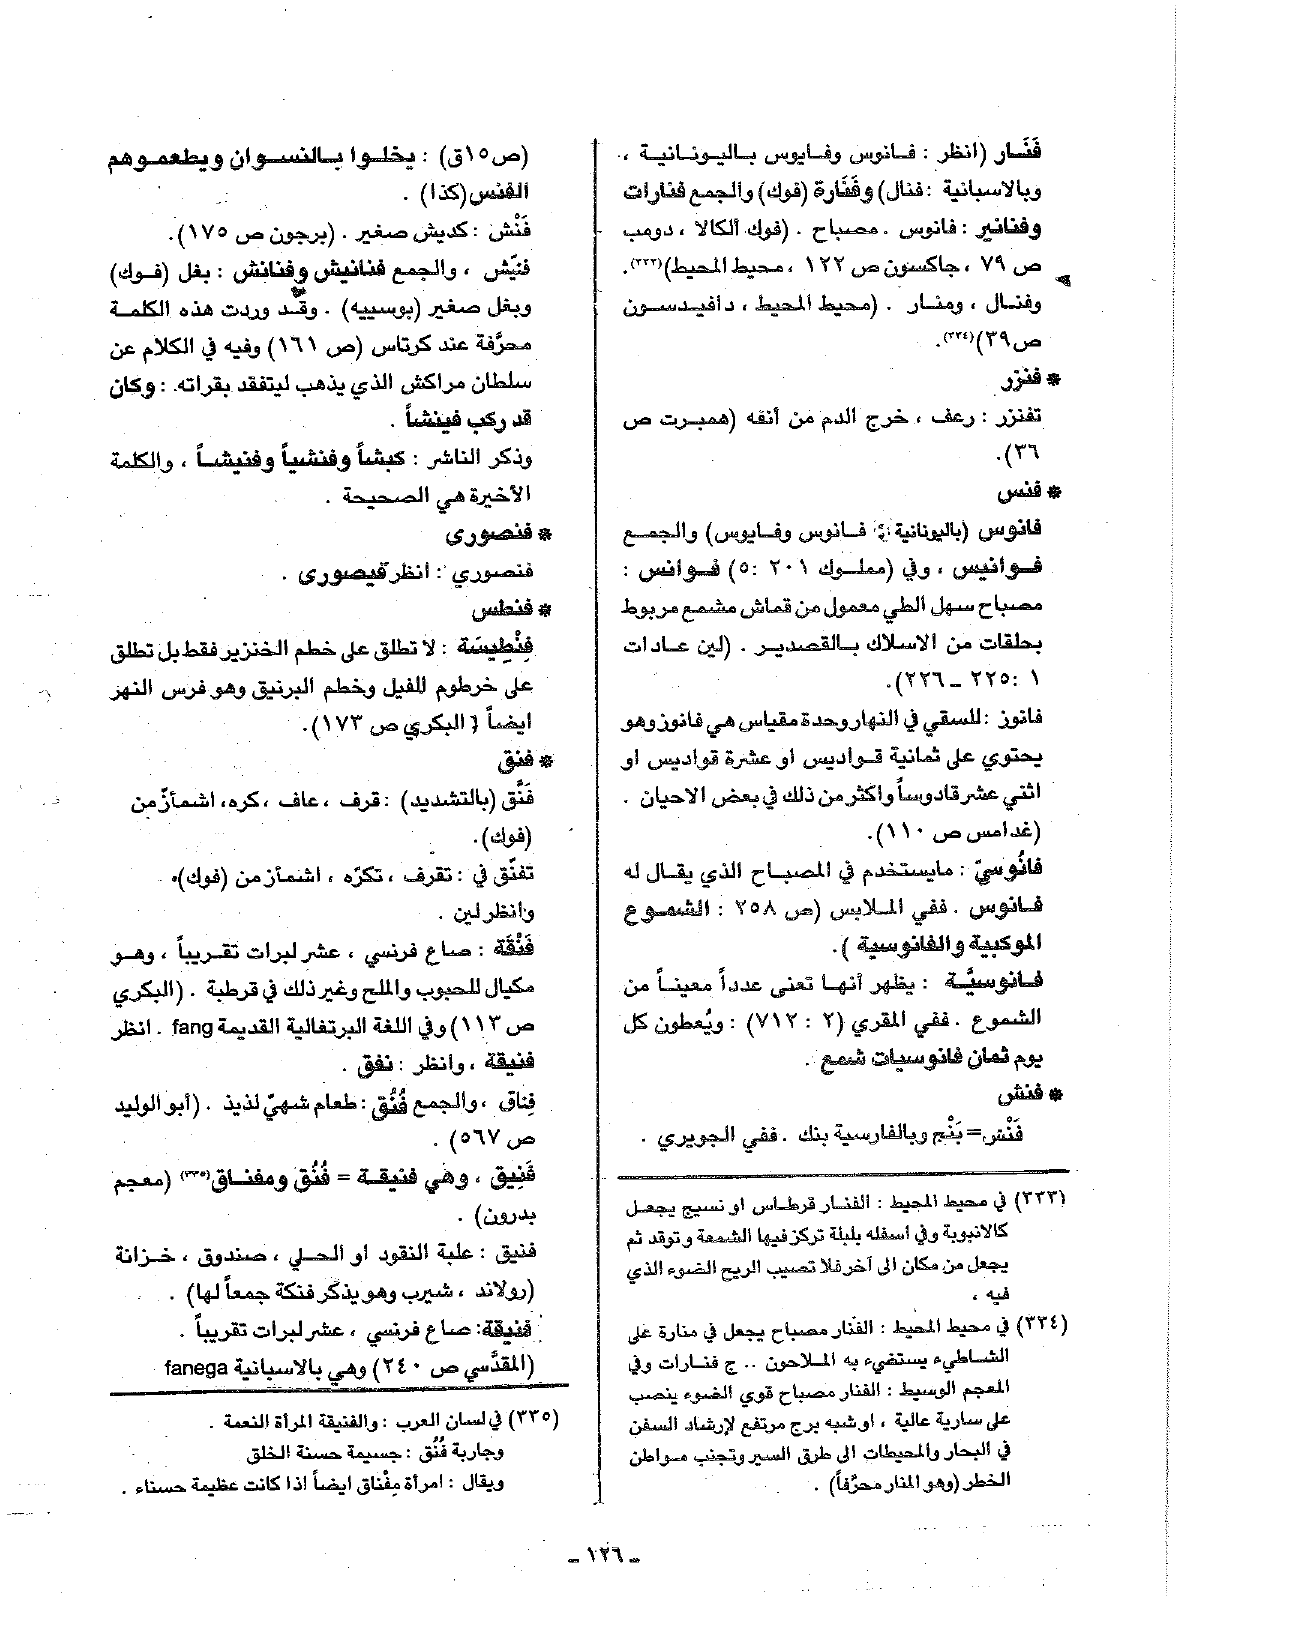 فَنَار (انظر : فانوس وفايوس باليونانية ،
وبالاسبانية : فنال) وفَنَارة (فوك) والجمع فنارات
وفنانير : فانوس . مصباح . (فوك الكالا ، دومب
ص ٧٩ ، جاكسون ص ١٢٢ ، محيط المحيط)(٣٣٣).
وفنال ، ومنار . (محيط المحيط ، دافيدسون
ص٣٩)(٣٣٤).
* فنزر
تفنزر : رعف ، خرج الدم من أنفه (همبرت ص
٣٦).
* فنس
فانوس (باليونانية فانوس وفايوس) والجمع
فوانيس ، وفي (مملوك ٢٠١ :٥) فوانس :
مصباح سهل الطي معمول من قماش مشمع مربوط
بحلقات من الاسلاك بالقصدير . (لين عادات
١ :٢٢٥ ـ ٢٢٦).
فانوز : للسقي في النهار وحدة مقياس هي فانوز وهو
يحتوي على ثمانية قواديس او عشرة قواديس او
اثني عشر قادوساً واكثر من ذلك في بعض الاحيان .
(غدامس ص ١١٠).
فانُوسيّ : مايستخدم في المصباح الذي يقال له
فانوس . ففي الملابس (ص ٢٥٨ : الشموع
الموكبية والفانوسية ).
فانوسيَّة : يظهر أنها تعنى عدداً معيناً من
الشموع . ففي المقري (٢ : ٧١٢) : ويُعطون كل
يوم ثمان فانوسيات شمع .
* فنش
فَنْش= بَنْج وبالفارسية بنك . ففي الجوبري .
(٣٣٣) في محيط المحيط : الفنار قرطاس او نسيج يجعل
كالانبوبة وفي أسفله بلبلة تركز فيها الشمعة وتوقد ثم
يجعل من مكان الى آخر فلا تصيب الريح الضوء الذي
فيه ،
(٣٣٤) في محيط المحيط : الفنار مصباح يجعل في منارة على
الشاطيء يستضيء به الملاحون .. ج فنارات وفي
المعجم الوسيط : الفنار مصباح قوي الضوء ينصب
على سارية عالية ، او شبه برج مرتفع لإرشاد السفن
في البحار والمحيطات الى طرق السير وتجنب مواطن
الخطر (وهو المنار محرّفاً) .
(ص١٥ق) : يخلوا بالنسوان ويطعموهم
الفنس (كذا) .
فَنْش : كديش صغير . (برجون ص ١٧٥).
فنّيش ، والجمع فنانيش وفنانش : بغل (فوك)
وبغل صغير (بوسييه) . وقد وردت هذه الكلمة
محرّفة عند كرتاس (ص ١٦١) وفيه في الكلام عن
سلطان مراكش الذي يذهب ليتفقد بقراته. : وكان
قد ركب فينشاً .
وذكر الناشر : كبشاً وفنشياً وفنيشاً ، والكلمة
الأخيرة هي الصحيحة .
* فنصورى
فنصوري : انظر قيصوري .
* فنطس
فِنْطِيسَة : لا تطلق على خطم الخنزير فقط بل تطلق
على خرطوم للفيل وخطم البرنيق وهو فرس النهر
ايضاً ( البكري ص ١٧٣).
* فنق
فَنَّق (بالتشديد) : قرف ، عاف ، كره، اشمأزّ من
(فوك).
تفنّق في : تقرف ، تكرّه ، اشمأز من (فوك)٠
وانظر لين .
فَنْقَة : صاع فرنسي ، عشر لبرات تقريباً ، وهو
مكيال للحبوب والملح وغير ذلك في قرطبة . (البكري
ص ١١٣) وفي اللغة البرتغالية القديمة fang . انظر
فنيقة ، وانظر : نفق .
فِناق ، والجمع فُنُق : طعام شهيّ لذيذ . (أبو الوليد
ص ٥٦٧) .
فَنِيق ، وهي فنيقة = فُنُق ومفناق(٣٣٥) (معجم
بدرون) .
فنيق : علبة النقود او الحلي ، صندوق ، خزانة
(رولاند ، شيرب وهو يذكر فنكة جمعاً لها) .
فنيقة: صاع فرنسي ، عشر لبرات تقريباً .
(المقدّسي ص ٢٤٠) وهي بالاسبانية fanega
(٣٣٥) في لسان العرب : والفنيقة المرأة النعمة .
وجارية فُنُق : جسيمة حسنة الخلق
ويقال : امرأة مِفْناق ايضاً اذا كانت عظيمة حسناء .
ـ ١٢٦ ـ